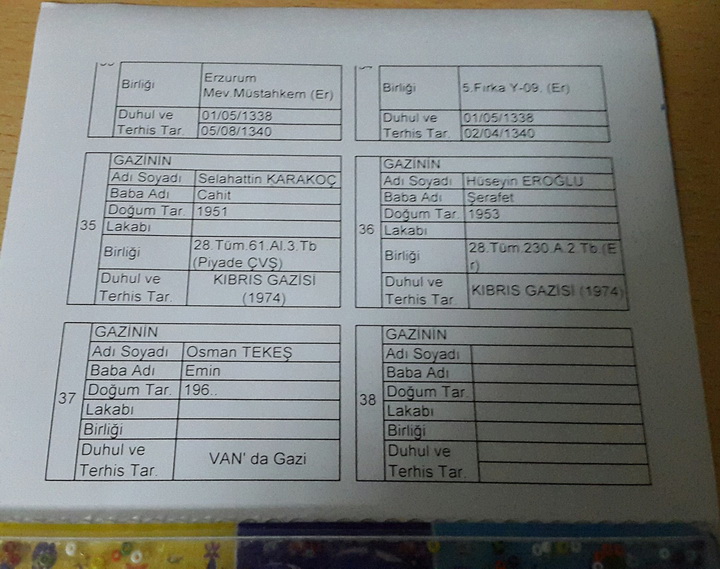 Birliği
Erzurum
Mev.Müstahkem (Er)
Duhul ve
Terhis Tar.
01/05/1338
05/08/1340
Birliği
5.Fırka Y-09. (Er)
Duhul ve
Terhis Tar.
01/05/1338
02/04/1340
35
GAZİNİN
Adı Soyadı Selahattin KARAKOÇ
Baba Adı Cahit
Doğum Tar. 1951
Lakabı
Birliği
28.Tüm.61.Al.3.Tb
(Piyade ÇVŞ)
Duhul ve
Terhis Tar.
KIBRIS GAZİSİ
(1974)
36
GAZİNİN
Adı Soyadı Hüseyin EROĞLU
Baba Adı Şerafet
Doğum Tar. 1953
Lakabı
Birliği
28.Tüm.230.A.2.Tb.(E
r)
Duhul ve
Terhis Tar.
KIBRIS GAZİSİ (1974)
37
GAZİNİN
Adı Soyadı Osman TEKEŞ
Baba Adı Emin
Doğum Tar. 196..
Lakabı
Birliği
Duhul ve
Terhis Tar.
VAN' da Gazi
38
GAZİNİN
Adı Soyadı
Baba Adı
Doğum Tar.
Lakabı
Birliği
Duhul ve
Terhis Tar.